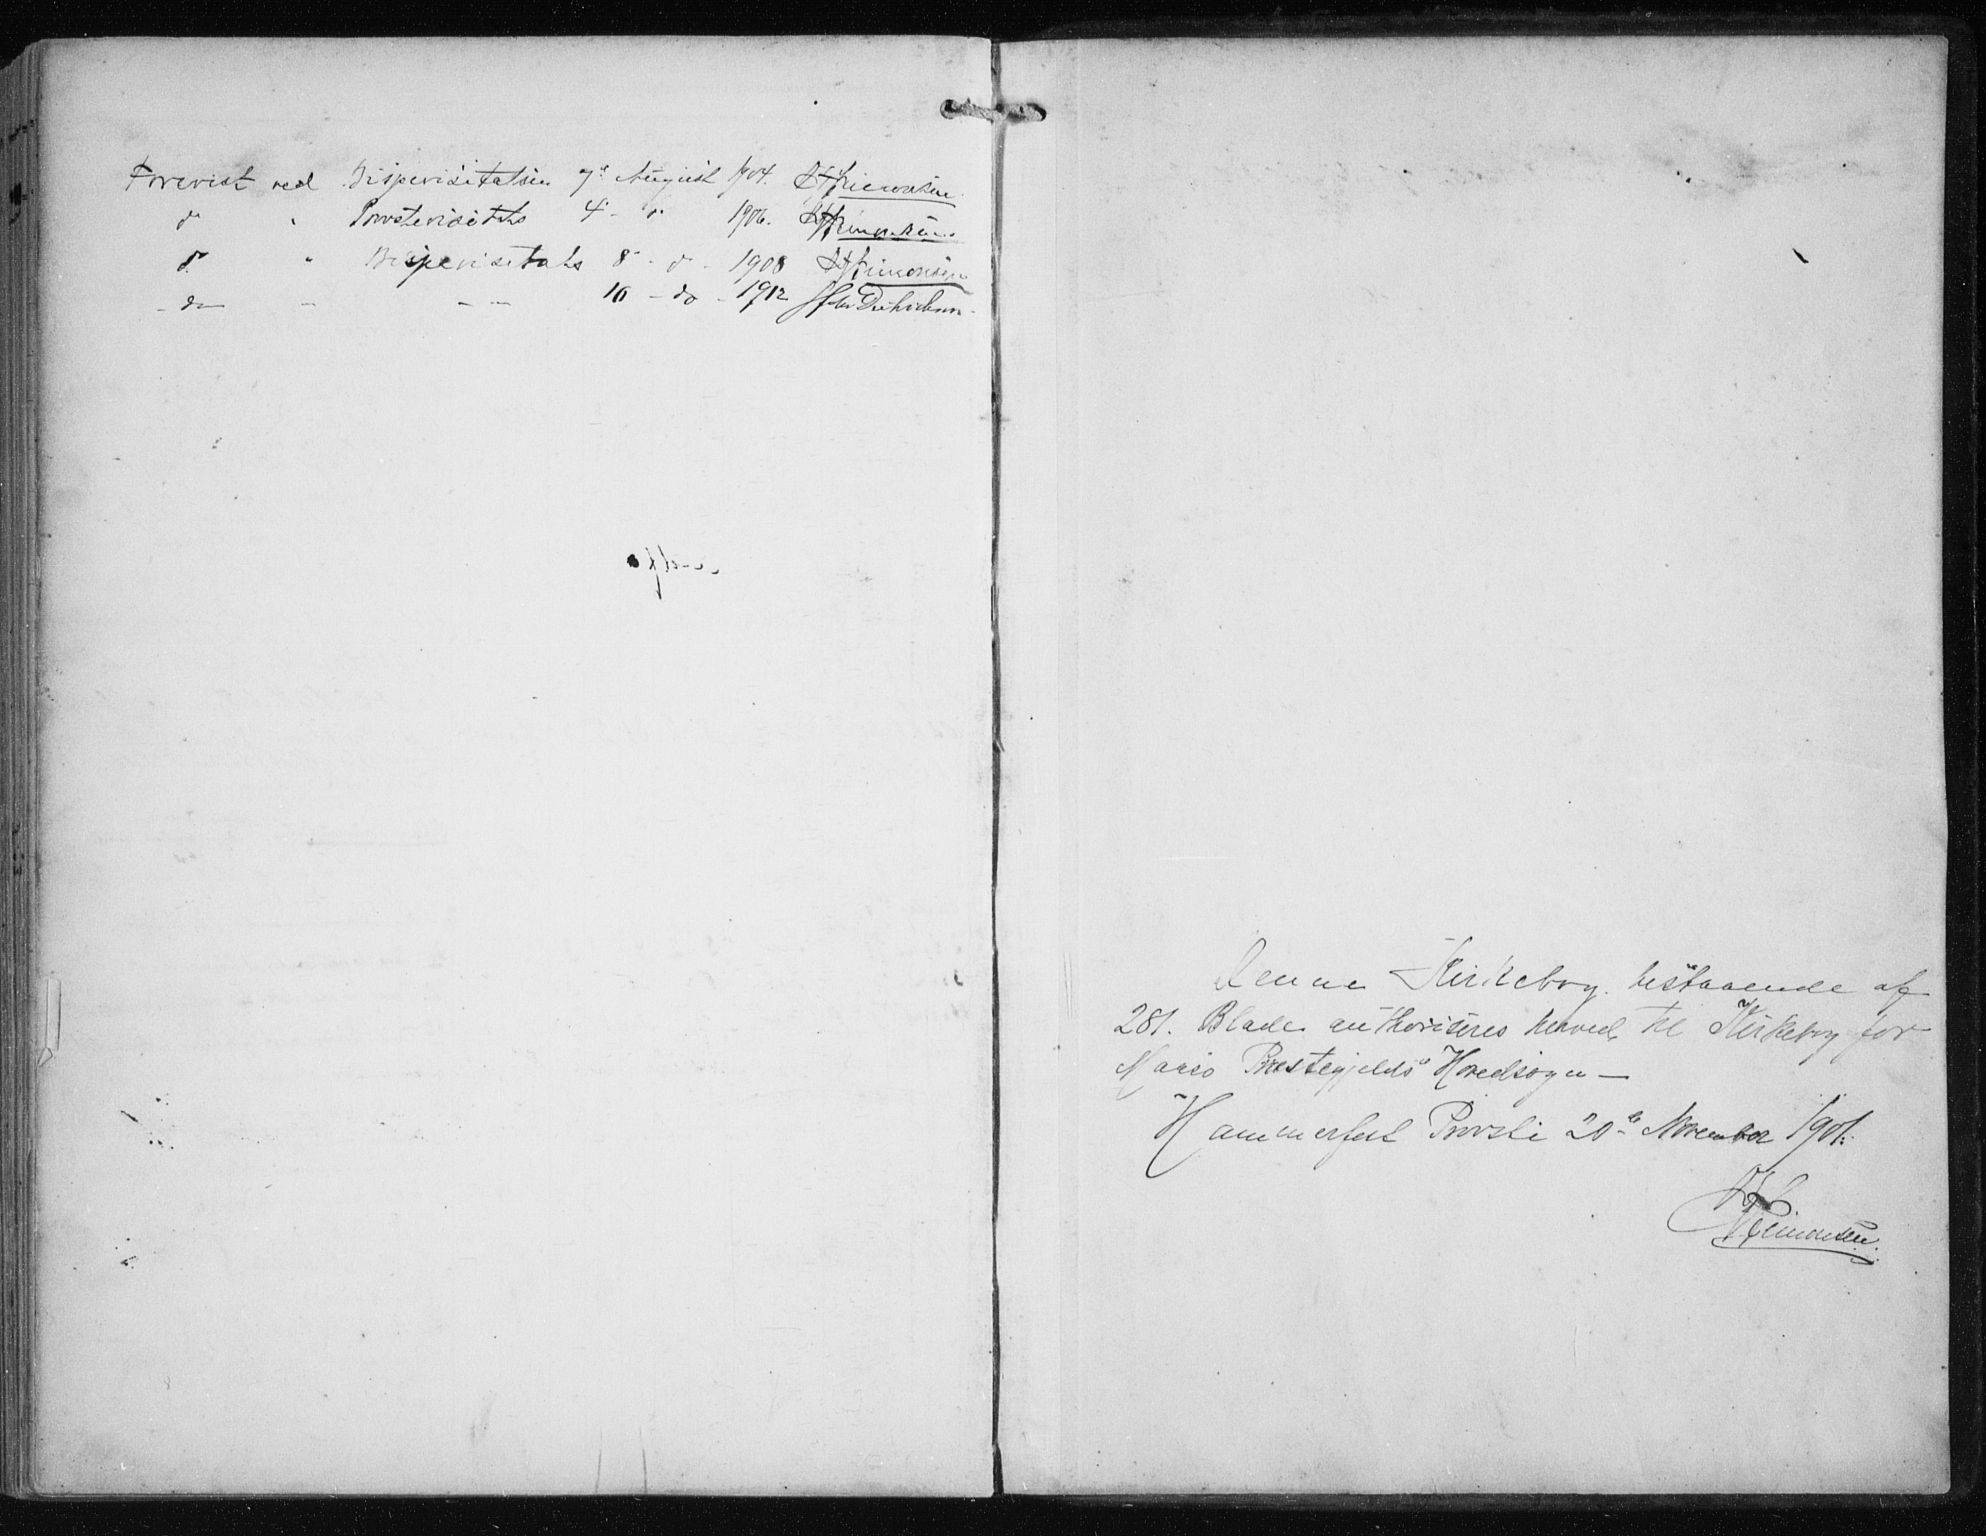 Forevist ved Bispevisitatsen 7de August 1904. Simonsen
do " Provstevisitats 4 - do 1906. Simonsen
do " Bispevisitats 8 - do - 1908 Simonsen
- do - - - - 10 - do - 1912
Denne Kirkebog bestaaende af
281. Blade authoriseres herved til Kirkebog for
Maasø Præstegjelds Hovedsogn —
Hammerfest Provsti 20de November 1901.
Simonsen.